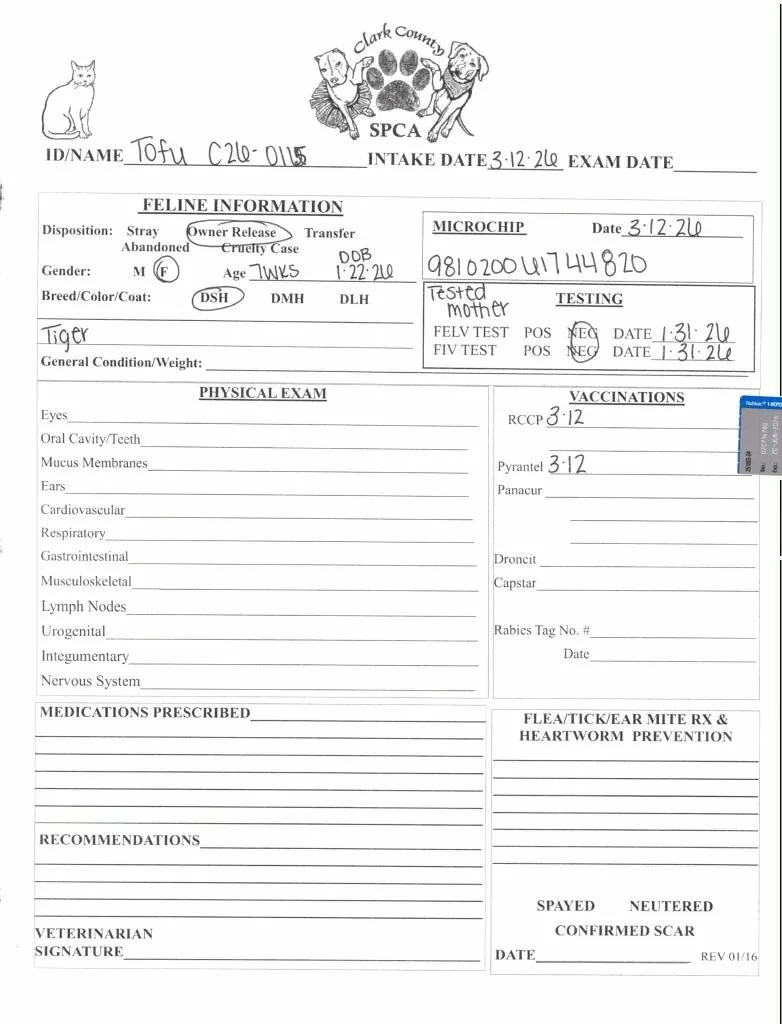 Clark County
SPCA
ID/NAME Tofu C26-0115 INTAKE DATE 3-12-26 EXAM DATE
FELINE INFORMATION
Disposition: Stray Owner Release Transfer
Abandoned Cruelty Case
DOB
Gender: M F Age 7WKS 1-22-26
Breed/Color/Coat: DSH DMH DLH
Tiger
General Condition/Weight:
MICROCHIP Date 3-12-26
981020041744820
Tested
mother
TESTING
FELV TEST POS NEG DATE 1-31-26
FIV TEST POS NEG DATE 1-31-26
PHYSICAL EXAM
Eyes
Oral Cavity/Teeth
Mucus Membranes
Ears
Cardiovascular
Respiratory
Gastrointestinal
Musculoskeletal
Lymph Nodes
Urogenital
Integumentary
Nervous System
VACCINATIONS
RCCP 3-12
Pyrantel 3-12
Panacur
Droncit
Capstar
Rabies Tag No. #
Date
MEDICATIONS PRESCRIBED
RECOMMENDATIONS
VETERINARIAN
SIGNATURE
FLEA/TICK/EAR MITE RX &
HEARTWORM PREVENTION
SPAYED NEUTERED
CONFIRMED SCAR
DATE REV 01/16